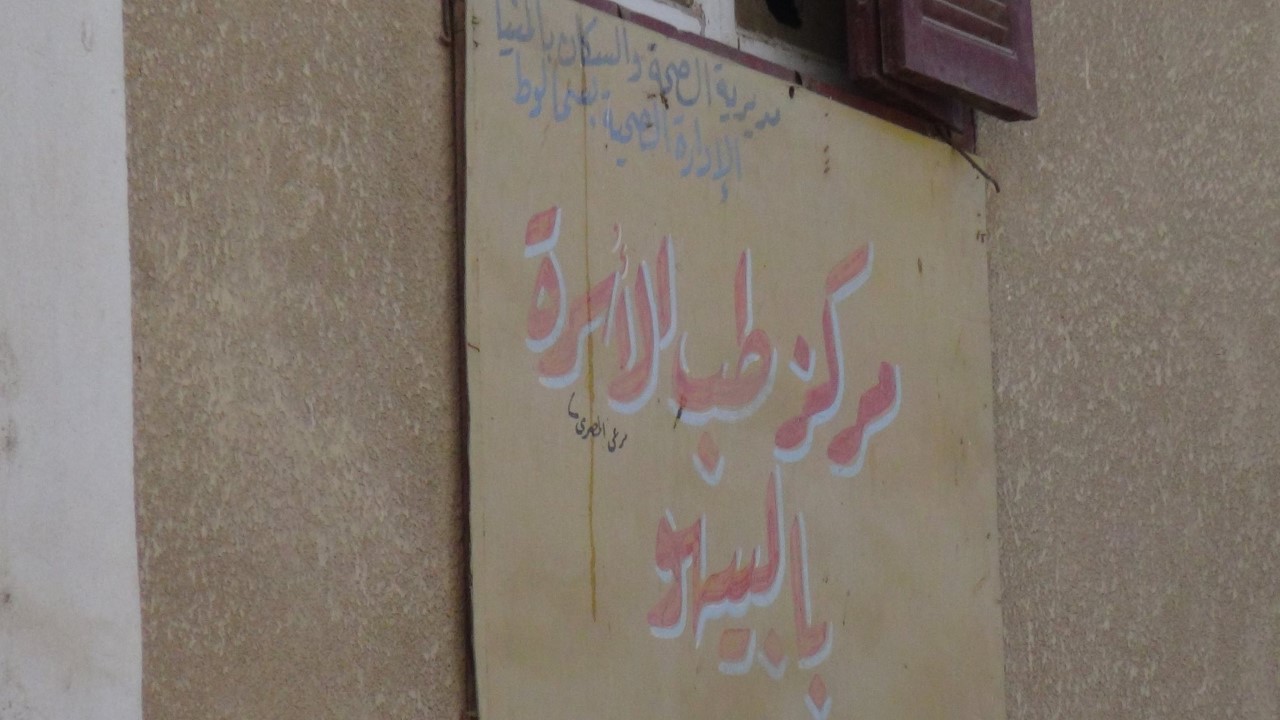 مديرية الصحة والسكان بالمنيا
الإدارة الصحية بسمالوط
مركز طب الأسرة
بالبيهو